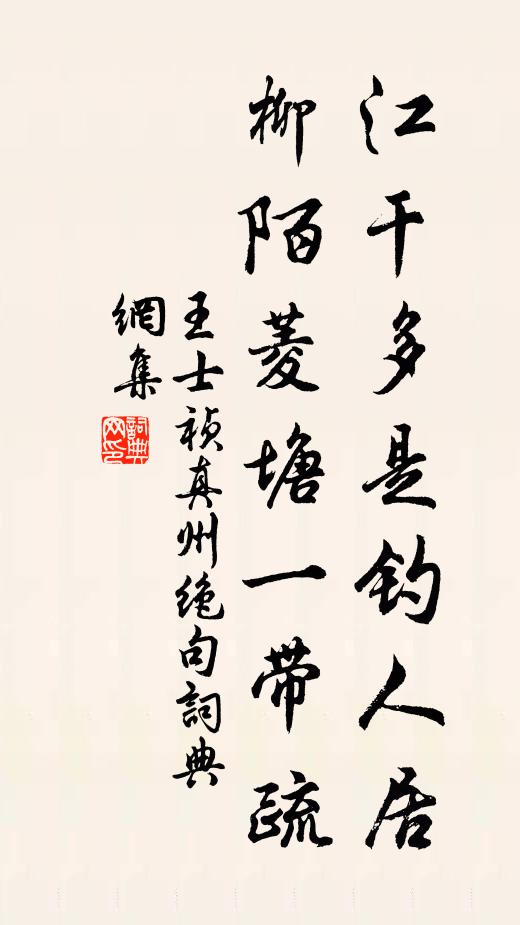 江干多是钓人居
柳陌菱塘一带疏
王士祯真州绝句詞典
網集
詞典
网印